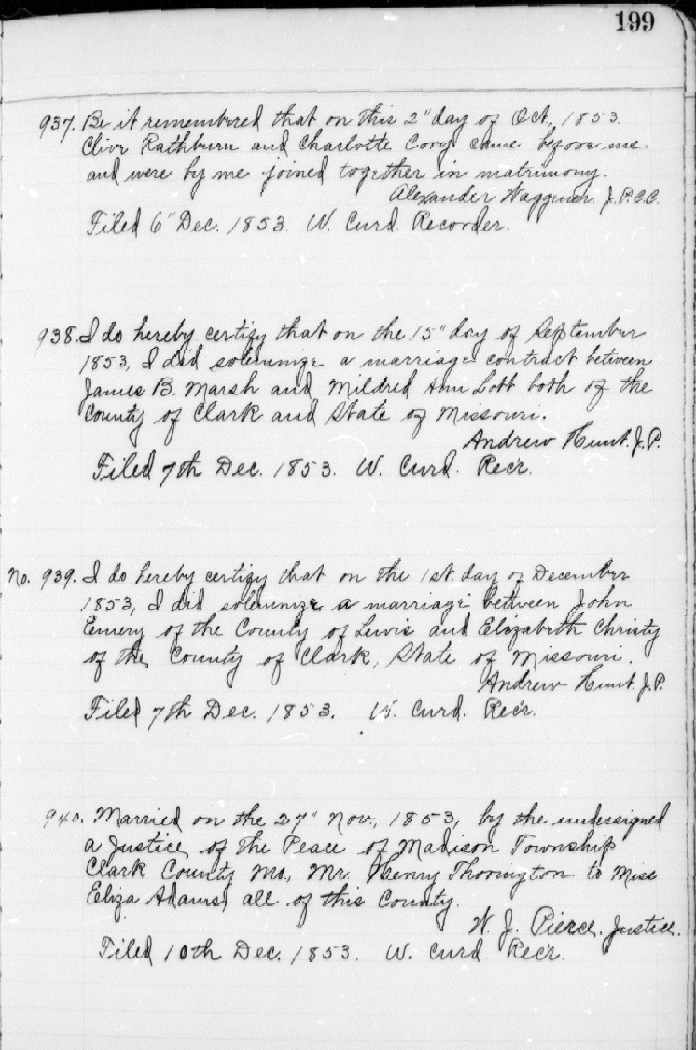 199
937. Be it remembered that on this 2" day of Oct, 1853.
Rathburn and Charlotte came before me
and were by me joined together in matrimony.
Alexander Waggener J.P.C.C.
Filed 6" Dec. 1853. W. Curd. Recorder.
938. I do hereby certify that on the 15" day of September
1853, I did solemnize a marriage contract between
James B. Marsh and Mildred Ann Lott both of the
County of Clark and State of Missouri.
Andrew Hunt. J.P.
Filed 7th Dec. 1853. W. Curd. Recr.
No. 939. I do hereby certify that on the 1st day of December
1853, I did solemnize a marriage between John
Emery of the County of Lewis and Elizabeth Christy
of the County of Clark, State of Missouri.
Andrew Hunt. J.P.
Filed 7th Dec. 1853. W. Curd. Rec'r.
940. Married on the 27" Nov., 1853, by the undersigned
a Justice of the Peace of Madison Township
Clark County Mo, Mr. Henry Thorington to Miss
Eliza Adams, all of this County.
W. J. Pierce. Justice.
Filed 10th Dec. 1853. W. Curd Rec'r.